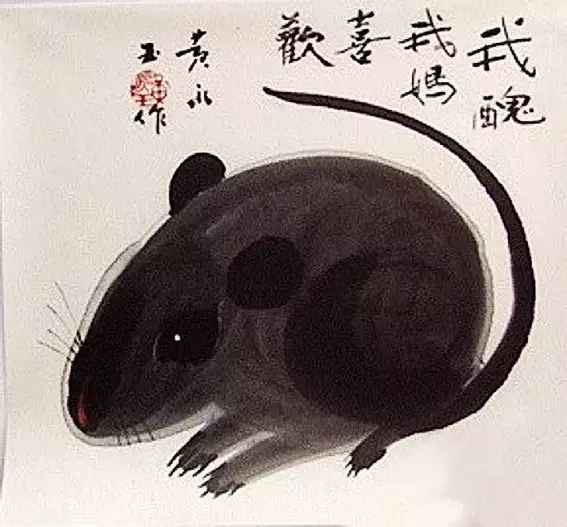 我醜
我媽
喜
歡
黄永
玉作